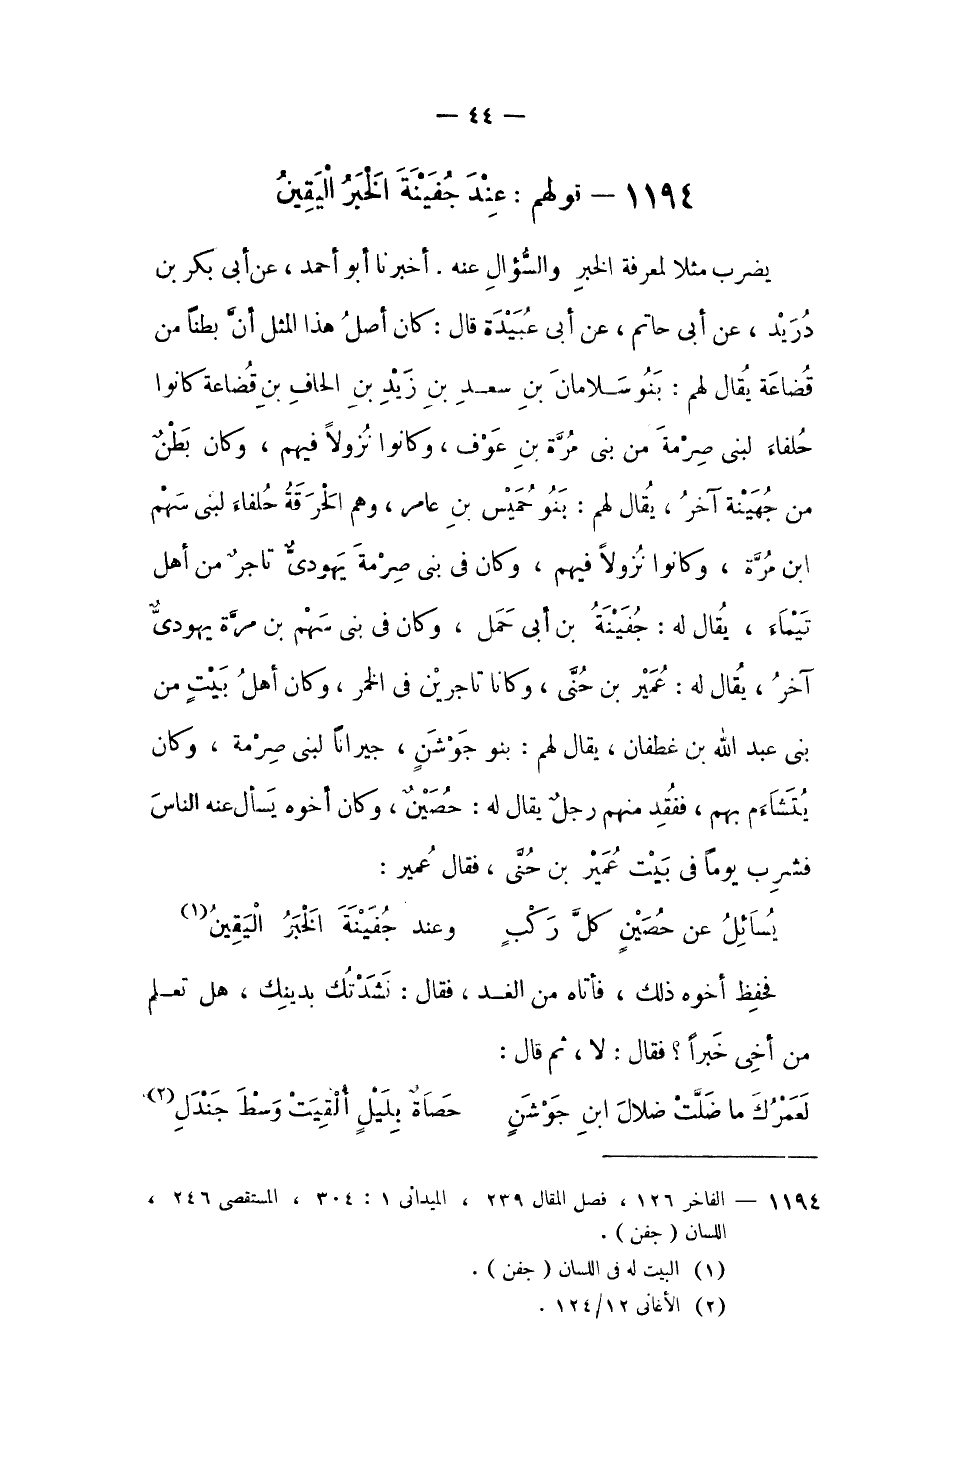 — ٤٤ —
١١٩٤ — قولهم : عِنْدَ جُفَيْنَةَ الْخَبَرُ الْيَقِينُ
يضرب مثلا لمعرفة الخبرِ والسُّؤالِ عنه . أخبرنا أبو أحمد ، عن أبى بكر بن
دُرَيْد ، عن أبى حاتم ، عن أبى عُبَيْدَة قال : كان أصلُ هذا المثل أنَّ بطناً من
قُضاعَة يُقال لهم : بَنُو سَلامانَ بنِ سعدِ بنِ زَيْدِ بنِ الحافِ بنِ قُضاعة كانوا
حُلفاءَ لبنى صِرْمةَ من بنى مُرَّة بنِ عَوْف ، وكانوا نُزولاً فيهم ، وكان بَطْنٌ
من جُهَيْنة آخرُ ، يُقال لهم : بَنُو حُمَيْس بنِ عامر ، وهم الحُرَقَةُ حُلفاءَ لبنى سَهْم
ابن مُرَّة ، وكانوا نُزولاً فيهم ، وكان فى بنى صِرْمةَ يَهودىٌّ تاجرٌ من أهل
تَيْمَاءَ ، يُقال له : جُفَيْنَةُ بن أبى حَمَل ، وكان فى بنى سَهْم بن مرَّة يهودىٌّ
آخرُ ، يُقال له : عُمَيْر بن حُنَّى ، وكانا تاجريْن فى الخمر ، وكان أهلُ بَيْتٍ من
بنى عبد الله بن غطفان ، يقال لهم : بنو جَوْشَنٍ ، جيراناً لبنى صِرْمة ، وكان
يُتَشاءَم بهم ، ففُقِد منهم رجلٌ يقال له : حُصَيْنٌ ، وكان أخوه يَسأل عنه الناسَ
فشرِب يوماً فى بَيْت عُمَيْر بن حُنَّى ، فقال عُمير :
يُسَائِلُ عن حُصَيْنٍ كلَّ رَكْبٍ وعند جُفَيْنَةَ الْخَبَرُ الْيَقِينُ(١)
فحفِظ أخوه ذلك ، فأتاه من الغد ، فقال : نَشَدْتُك بدينِك ، هل تعلم
من أخِى خَبراً ؟ فقال : لا ، ثم قال :
لَعَمْرُكَ ما ضَلَّتْ ضلالَ ابنِ جَوْشَنٍ حصَاةٌ بِلَيْلٍ أُلْقِيَتْ وَسْطَ جَنْدَلِ(٢)
١١٩٤ — الفاخر ١٢٦ ، فصل المقال ٢٣٩ ، الميدانى ١ : ٣٠٤ ، المستقصى ٢٤٦ ،
اللسان ( جفن ) .
(١) البيت له فى اللسان ( جفن ) .
(٢) الأغانى ١٢٤/١٢ .